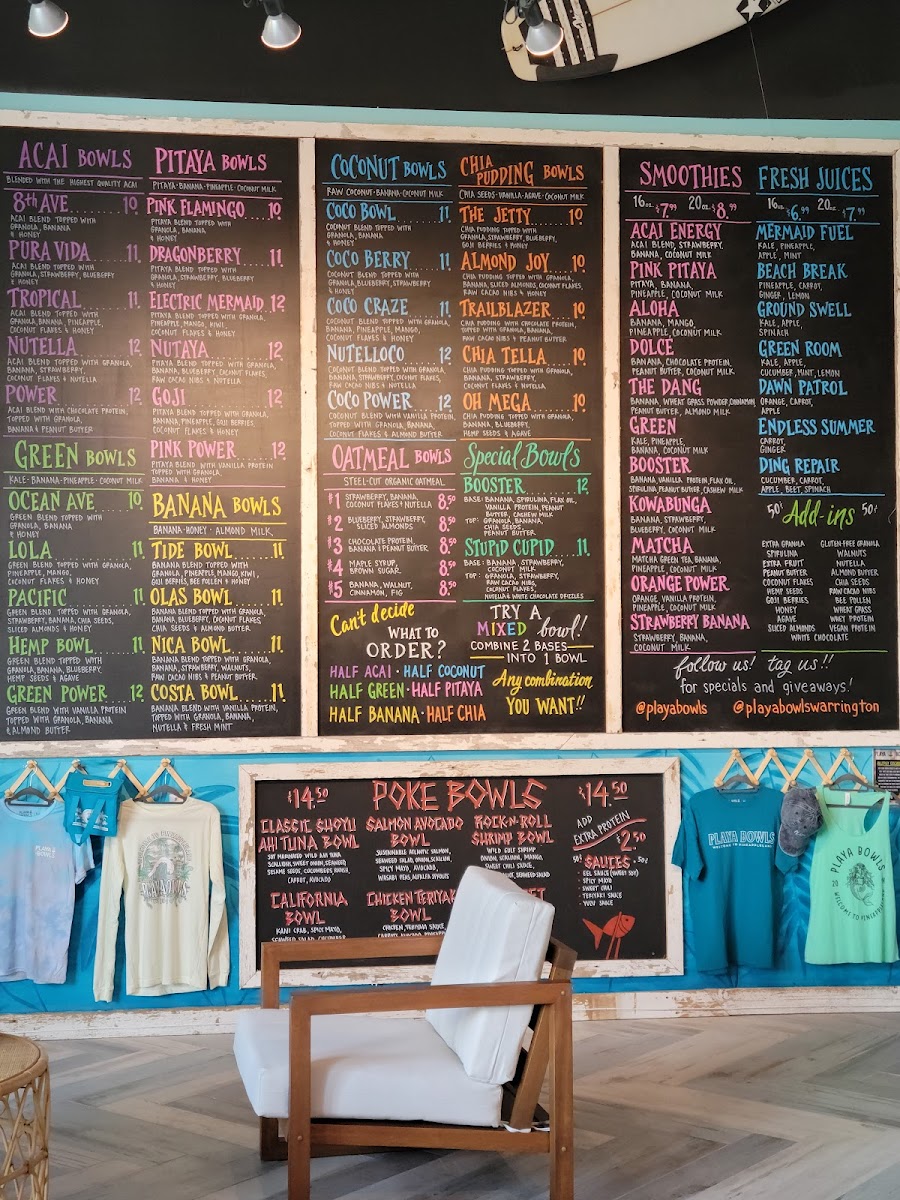 ACAI BOWLS
BLENDED WITH THE HIGHEST QUALITY ACAI
8th AVE 10
ACAI BLEND TOPPED WITH
GRANOLA, BANANA
& HONEY
PURA VIDA 11
ACAI BLEND TOPPED WITH
GRANOLA, STRAWBERRY, BLUEBERRY
& HONEY
TROPICAL 11
ACAI BLEND TOPPED WITH
GRANOLA, BANANA, PINEAPPLE,
COCONUT FLAKES & HONEY
NUTELLA 12
ACAI BLEND TOPPED WITH GRANOLA,
BANANA, STRAWBERRY,
COCONUT FLAKES & NUTELLA
POWER 12
ACAI BLEND WITH CHOCOLATE PROTEIN,
TOPPED WITH GRANOLA,
BANANA & PEANUT BUTTER
GREEN BOWLS
KALE·BANANA·PINEAPPLE·COCONUT MILK
OCEAN AVE 10
GREEN BLEND TOPPED WITH
GRANOLA, BANANA
& HONEY
LOLA 11
GREEN BLEND TOPPED WITH GRANOLA,
PINEAPPLE, MANGO,
COCONUT FLAKES & HONEY
PACIFIC 11
GREEN BLEND TOPPED WITH GRANOLA,
STRAWBERRY, BANANA, CHIA SEEDS,
SLICED ALMONDS & HONEY
HEMP BOWL 11
GREEN BLEND TOPPED WITH
GRANOLA, BANANA, BLUEBERRY,
HEMP SEEDS & AGAVE
GREEN POWER 12
GREEN BLEND WITH VANILLA PROTEIN
TOPPED WITH GRANOLA, BANANA
& ALMOND BUTTER
PITAYA BOWLS
PITAYA·BANANA·PINEAPPLE·COCONUT MILK
PINK FLAMINGO 10
PITAYA BLEND TOPPED WITH
GRANOLA, BANANA,
& HONEY
DRAGONBERRY 11
PITAYA BLEND TOPPED WITH
GRANOLA, STRAWBERRY, BLUEBERRY
& HONEY
ELECTRIC MERMAID 12
PITAYA BLEND TOPPED WITH GRANOLA,
PINEAPPLE, MANGO, KIWI,
COCONUT FLAKES & HONEY
NUTAYA 12
PITAYA BLEND TOPPED WITH GRANOLA,
BANANA, BLUEBERRY, COCONUT FLAKES,
RAW CACAO NIBS & NUTELLA
GOJI 12
PITAYA BLEND TOPPED WITH GRANOLA,
BANANA, PINEAPPLE, GOJI BERRIES,
COCONUT FLAKES & HONEY
PINK POWER 12
PITAYA BLEND WITH VANILLA PROTEIN
TOPPED WITH GRANOLA,
BANANA & HONEY
BANANA BOWLS
BANANA·HONEY·ALMOND MILK
TIDE BOWL 11
BANANA BLEND TOPPED WITH
GRANOLA, PINEAPPLE, MANGO, KIWI,
GOJI BERRIES, BEE POLLEN & HONEY
OLAS BOWL 11
BANANA BLEND TOPPED WITH GRANOLA,
BANANA, BLUEBERRY, COCONUT FLAKES,
CHIA SEEDS & ALMOND BUTTER
NICA BOWL 11
BANANA BLEND TOPPED WITH GRANOLA,
BANANA, STRAWBERRY, WALNUTS,
RAW CACAO NIBS & PEANUT BUTTER
COSTA BOWL 11
BANANA BLEND WITH VANILLA PROTEIN,
TOPPED WITH GRANOLA, BANANA,
NUTELLA & FRESH MINT
COCONUT BOWLS
RAW COCONUT·BANANA·COCONUT MILK
COCO BOWL 11
COCONUT BLEND TOPPED WITH
GRANOLA, BANANA
& HONEY
COCO BERRY 11
COCONUT BLEND TOPPED WITH
GRANOLA, BLUEBERRY, STRAWBERRY
& HONEY
COCO CRAZE 11
COCONUT BLEND TOPPED WITH GRANOLA,
BANANA, PINEAPPLE, MANGO,
COCONUT FLAKES & HONEY
NUTELLOCO 12
COCONUT BLEND TOPPED WITH GRANOLA,
BANANA, STRAWBERRY, COCONUT FLAKES,
RAW CACAO NIBS & NUTELLA
COCO POWER 12
COCONUT BLEND WITH VANILLA PROTEIN,
TOPPED WITH GRANOLA, BANANA,
COCONUT FLAKES & ALMOND BUTTER
CHIA PUDDING BOWLS
CHIA SEEDS·VANILLA·AGAVE·COCONUT MILK
THE JETTY 10
CHIA PUDDING TOPPED WITH
GRANOLA, STRAWBERRY, BLUEBERRY,
GOJI BERRIES & HONEY
ALMOND JOY 10
CHIA PUDDING TOPPED WITH GRANOLA,
BANANA, SLICED ALMONDS, COCONUT FLAKES,
RAW CACAO NIBS & HONEY
TRAILBLAZER 10
CHIA PUDDING WITH CHOCOLATE PROTEIN,
TOPPED WITH GRANOLA, BANANA,
RAW CACAO NIBS & PEANUT BUTTER
CHIA TELLA 10
CHIA PUDDING TOPPED WITH GRANOLA,
BANANA, STRAWBERRY,
COCONUT FLAKES & NUTELLA
OH MEGA 10
CHIA PUDDING TOPPED WITH GRANOLA,
BANANA, BLUEBERRY,
HEMP SEEDS & AGAVE
OATMEAL BOWLS
STEEL-CUT ORGANIC OATMEAL
#1 STRAWBERRY, BANANA,
COCONUT FLAKES & NUTELLA 8.50
#2 BLUEBERRY, STRAWBERRY,
SLICED ALMONDS 8.50
#3 CHOCOLATE PROTEIN,
BANANA & PEANUT BUTTER 8.50
#4 MAPLE SYRUP,
BROWN SUGAR 8.50
#5 BANANA, WALNUT,
CINNAMON, FIG 8.50
Special Bowls
BOOSTER 12
BASE: BANANA, SPIRULINA, FLAX OIL,
VANILLA PROTEIN, PEANUT
BUTTER, CASHEW MILK
TOP: GRANOLA, BANANA,
CHIA SEEDS,
PEANUT BUTTER
STUPID CUPID 11
BASE: BANANA, STRAWBERRY,
COCONUT MILK
TOP: GRANOLA, STRAWBERRY,
RAW CACAO NIBS,
COCONUT FLAKES,
NUTELLA & WHITE CHOCOLATE DRIZZLES
Can't decide
WHAT TO
ORDER?
HALF ACAI · HALF COCONUT
HALF GREEN · HALF PITAYA
HALF BANANA · HALF CHIA
TRY A
MIXED bowl!
COMBINE 2 BASES
INTO 1 BOWL
Any combination
YOU WANT!!
SMOOTHIES
16 oz. $7.99 20 oz. $8.99
ACAI ENERGY
ACAI BLEND, STRAWBERRY,
BANANA, COCONUT MILK
PINK PITAYA
PITAYA, BANANA,
PINEAPPLE, COCONUT MILK
ALOHA
BANANA, MANGO,
PINEAPPLE, COCONUT MILK
DOLCE
BANANA, CHOCOLATE PROTEIN,
PEANUT BUTTER, COCONUT MILK
THE DANG
BANANA, WHEAT GRASS POWDER, CINNAMON
PEANUT BUTTER, ALMOND MILK
GREEN
KALE, PINEAPPLE,
BANANA, COCONUT MILK
BOOSTER
BANANA, VANILLA PROTEIN, FLAX OIL,
SPIRULINA, PEANUT BUTTER, CASHEW MILK
KOWABUNGA
BANANA, STRAWBERRY,
BLUEBERRY, COCONUT MILK
MATCHA
MATCHA GREEN TEA, BANANA,
PINEAPPLE, COCONUT MILK
ORANGE POWER
ORANGE, VANILLA PROTEIN,
PINEAPPLE, COCONUT MILK
STRAWBERRY BANANA
STRAWBERRY, BANANA,
COCONUT MILK
FRESH JUICES
16 oz. $6.99 20 oz. $7.99
MERMAID FUEL
KALE, PINEAPPLE,
APPLE, MINT
BEACH BREAK
PINEAPPLE, CARROT,
GINGER, LEMON
GROUND SWELL
KALE, APPLE,
SPINACH
GREEN ROOM
KALE, APPLE,
CUCUMBER, MINT, LEMON
DAWN PATROL
ORANGE, CARROT,
APPLE
ENDLESS SUMMER
CARROT,
GINGER
DING REPAIR
CUCUMBER, CARROT,
APPLE, BEET, SPINACH
50¢ Add-ins 50¢
EXTRA GRANOLA
SPIRULINA
EXTRA FRUIT
PEANUT BUTTER
COCONUT FLAKES
HEMP SEEDS
GOJI BERRIES
HONEY
AGAVE
SLICED ALMONDS
GLUTEN-FREE GRANOLA
WALNUTS
NUTELLA
ALMOND BUTTER
CHIA SEEDS
RAW CACAO NIBS
BEE POLLEN
WHEAT GRASS
WHEY PROTEIN
VEGAN PROTEIN
WHITE CHOCOLATE
follow us! tag us!!
for specials and giveaways!
@playabowls @playabowlswarrington
$14.50 POKE BOWLS $14.50
CLASSIC SHOYU
AHI TUNA BOWL
SOY MARINATED WILD AHI TUNA
SCALLION, SWEET ONION, SEAWEED
SESAME SEEDS, CUCUMBER,
CARROT, AVOCADO
SALMON AVOCADO
BOWL
SUSTAINABLE ATLANTIC SALMON,
SEAWEED SALAD, ONION, SCALLION,
SPICY MAYO, AVOCADO,
ROCK-N-ROLL
SHRIMP BOWL
WILD GULF SHRIMP
ONION, SCALLION, MANGO,
SWEET CHILI SAUCE,
ADD
EXTRA PROTEIN
$2.50
50¢ SAUCES 50¢
- EEL SAUCE (SWEET SOY)
- SPICY MAYO
- SWEET CHILI
- TERIYAKI SAUCE
- YUZU SAUCE
CALIFORNIA
BOWL
KANI CRAB, SPICY MAYO,
CHICKEN TERIYAKI
BOWL
CHICKEN, TERIYAKI SAUCE,
PLAYA BOWLS
PLAYA BOWLS
WELCOME TO PINEAPPLELAND